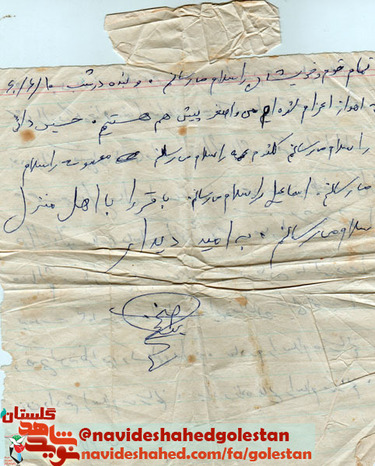 تمام قوم و خویشان را سلام می‌رسانم. و بنده در شب ۶۰/۶/۱
به اهواز اعزام شده‌ام من و اصغر پیش هم هستیم. حسین دائی
را سلام می‌رسانم کلثوم عمه را سلام می‌رسانم معصومه را سلام
می‌رسانم. اسماعیل را سلام می‌رسانم. باقر را با اهل منزل
سلام می‌رسانم. به امید دیدار
نوید شاهد گلستان
@navideshahedgolestan
navideshahed.com/fa/golestan